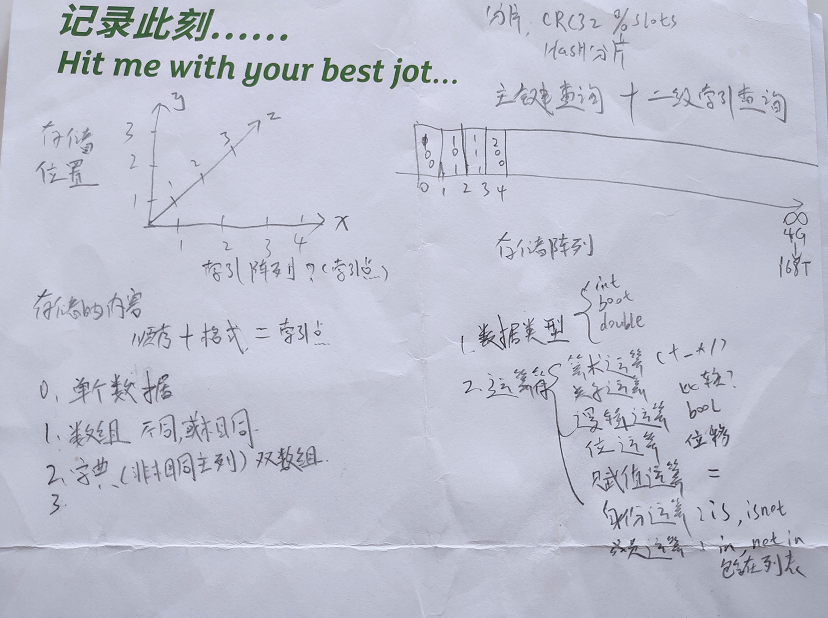 记录此刻......
Hit me with your best jot...
分片, CRC32 % slots
Hash分片
主键查询 + 二级索引查询
存储
位置
y
z
3
2
1
1
2
3
1 2 3 4
x
索引阵列?(索引点)
0 1 2 3 4
∞
4G
168T
存储阵列
存储的内容
顺序 + 格式 = 索引点
0. 单个数据
1. 数组 不同,或相同.
2. 字典 (非相同主列) 双数组.
3.
1. 数据类型
int
boot
double
2. 运算符
算术运算 (+-*/)
关于运算 比较?
逻辑运算 bool
位运算 位移
赋值运算 =
身份运算: is, isnot
成员运算: in, not in
包含在列表